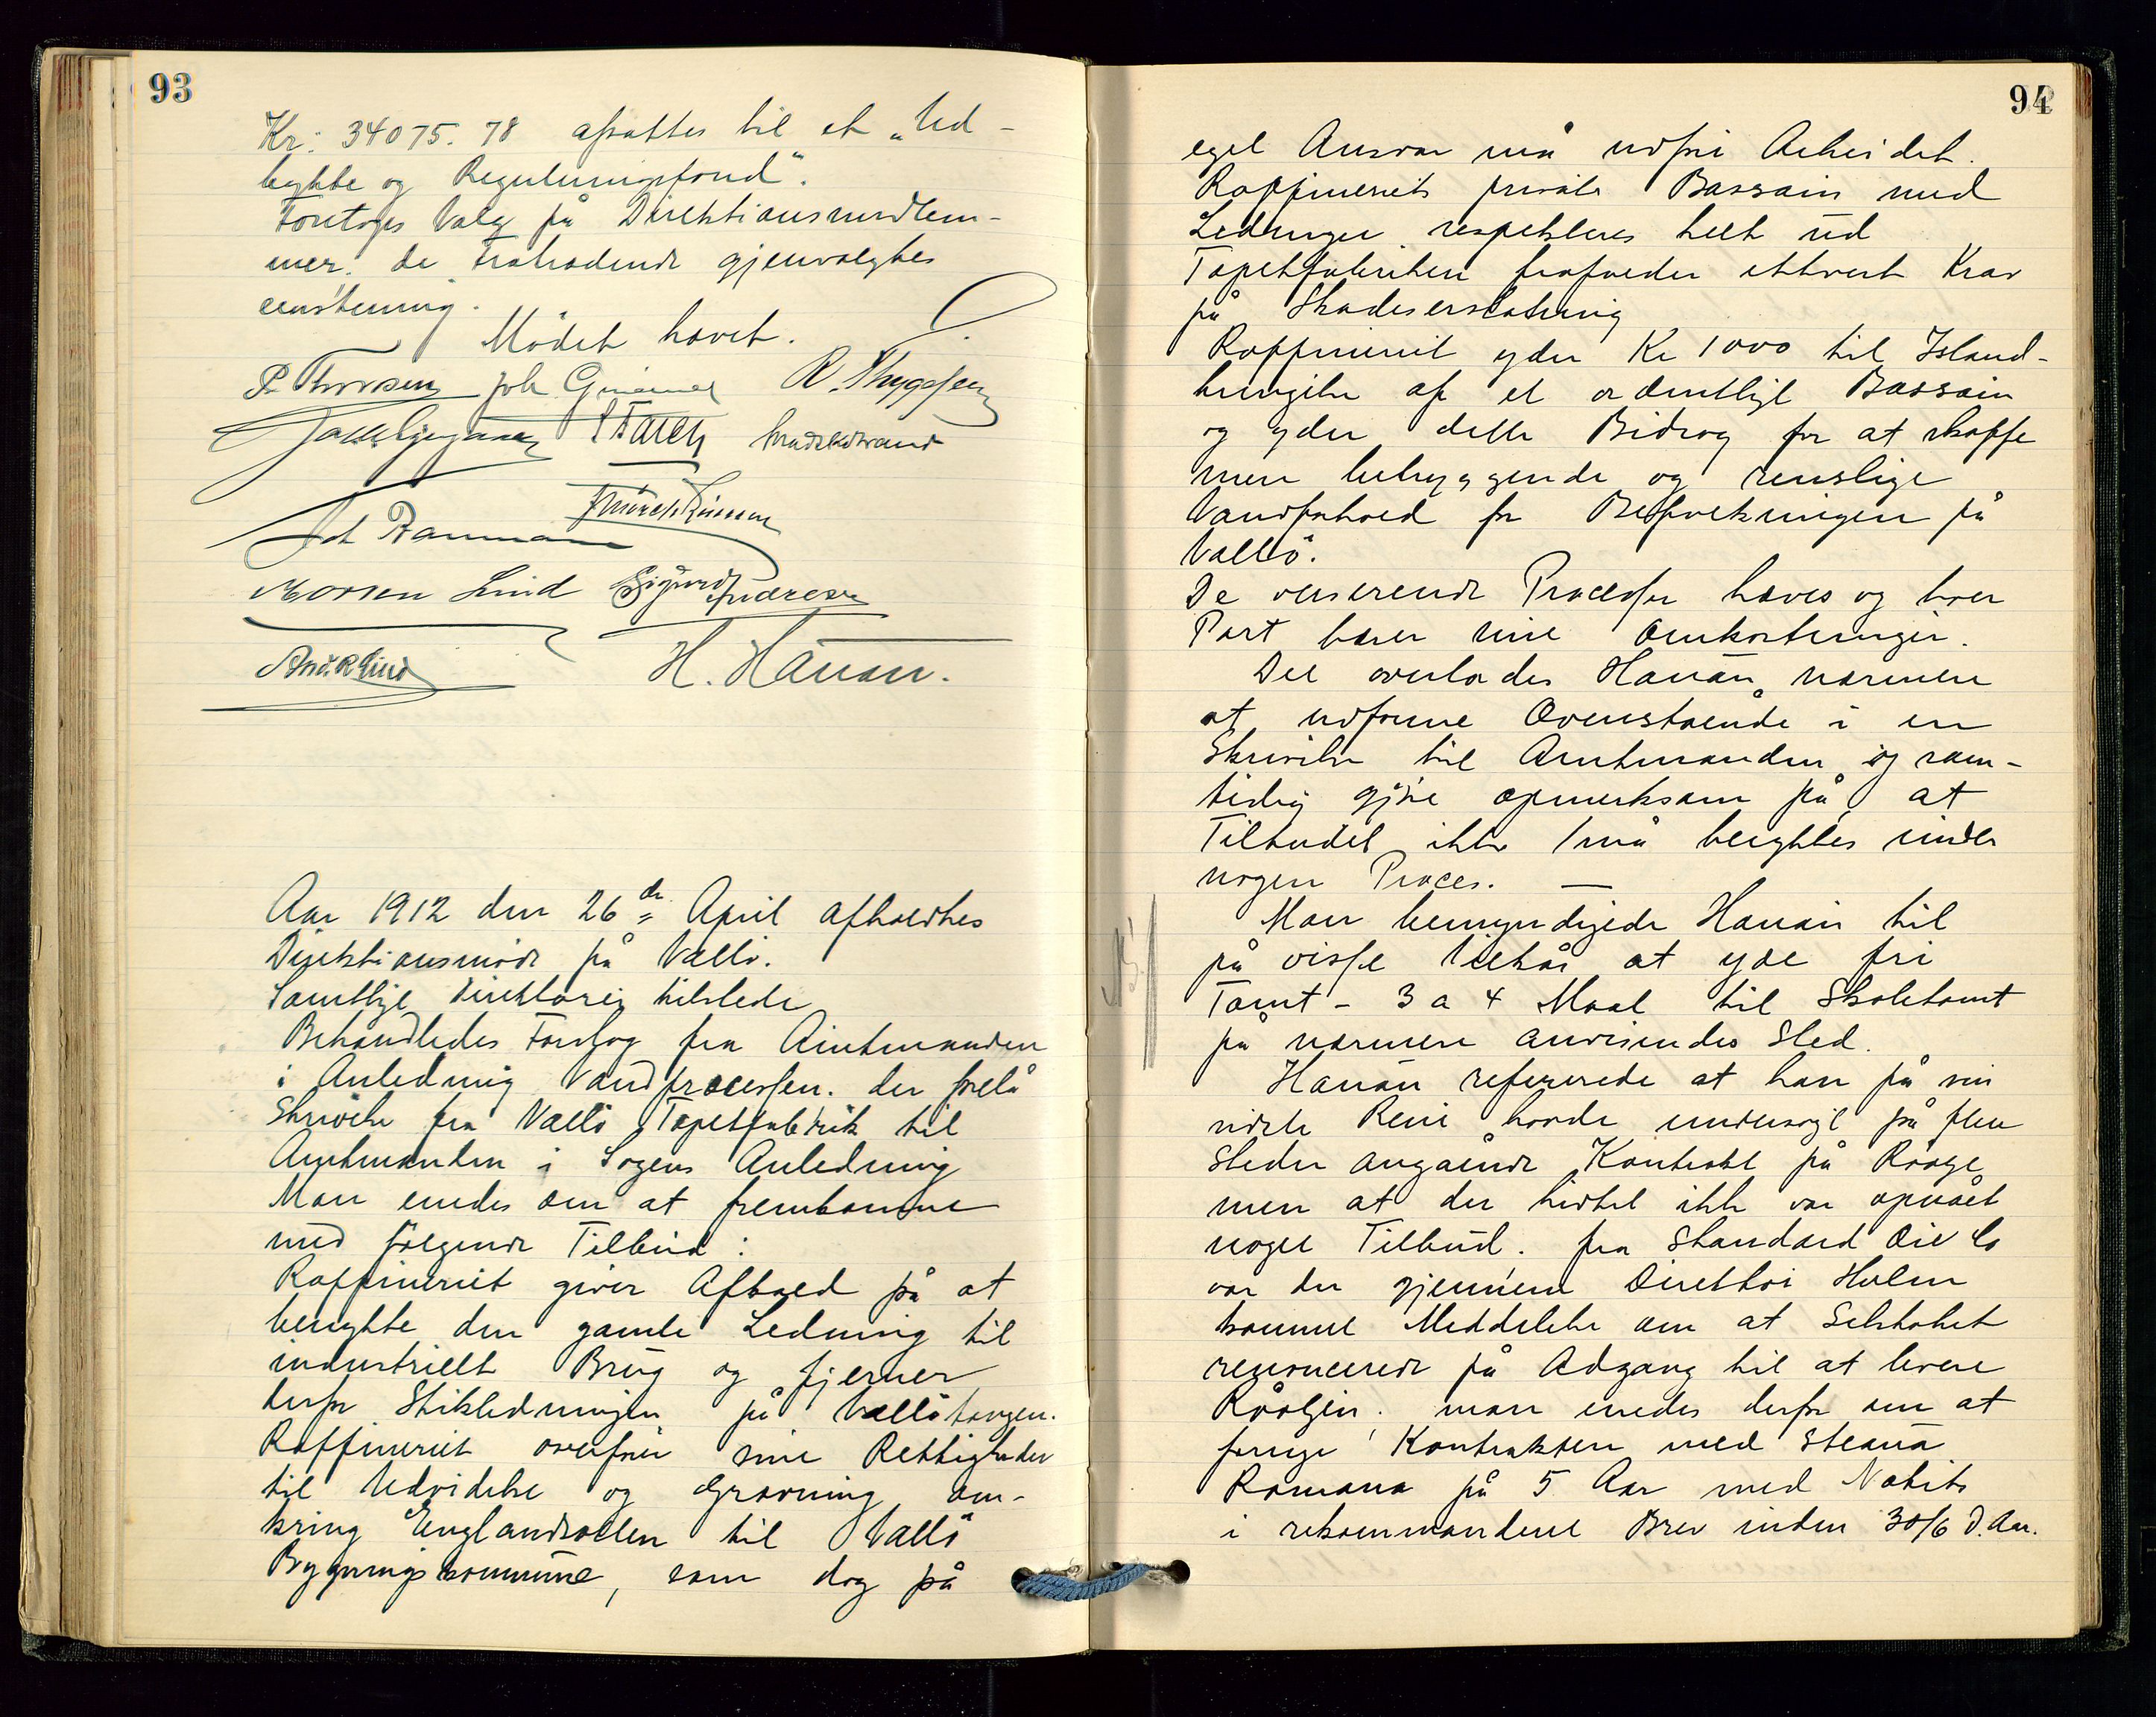 93
Kr. 34075.78 afsattes til et „Ud-
bytte og Reguleringsfond“.
Foretoges Valg på Direktionsmedlem-
mer. de Fratrædende gjenvalgtes
enstemmig.
Mödet hævet.
P. Thorsen Joh. R. Thygesen
S Falch
Morten Lind Sigurd
And. R Lind H. Hanan.
Aar 1912 den 26de April afholdtes
Direktionsmöde på Vallö.
Samtlige Direktører tilstede
Behandledes Forslag fra Amtmanden
i Anledning Vandprocessen. der forelå
Skrivelse fra Vallö Tapetfabrik til
Amtmanden i Sagens Anledning
Man enedes om at fremkomme
med følgende Tilbud:
Raffineriet giver Afkald på at
benytte den gamle Ledning til
industrielt Brug og fjerner
derfor Stikledningen på Vallötangen.
Raffineriet overfører sine Rettigheder
til Udvidelse og Gravning om-
kring Englandsoelen til Vallö
Bygningskommune, som dog på
94
eget Ansvar må udføre Arbeidet.
Raffineriets private Bassain med
Ledninger respekteres helt ud
Tapetfabriken frafalder ethvert Krav
på Skadeserstatning
Raffineriet yder Kr 1000 til Istand-
bringelse af et ordentligt Bassain
og yder dette Bidrag for at skaffe
mere betryggende og renslige
Vandforhold for Befolkningen på
Vallö.
De verserende Processer hæves og hver
Part bærer sine Omkostninger.
Det overlades Hanan nærmere
at udforme Ovenstående i en
Skrivelse til Amtmanden og sam-
tidig gjøre opmerksom på, at
Tilbudet ikke må benyttes under
nogen Proces. —
Man bemyndigede Hanan til
på visse Vilkår at yde fri
Tomt - 3 a 4 Maal til Skoletomt
på nærmere anvisendes Sted.
Hanan refererede at han på sin
sidste Reise havde undersøgt på flere
Steder angående Kontrakt på Råolje
men at der hidtil ikke var opnået
noget Tilbud. fra Standard Oil Co
var der gjennem Direktør Holm
kommet Meddelelse om at Selskabet
renoncerede på Adgang til at levere
Råoljen. man enedes derfor om at
forny Kontrakten med Steaua
Romana på 5 Aar med Notits
i rekommanderet Brev inden 30/6 d. Aar.